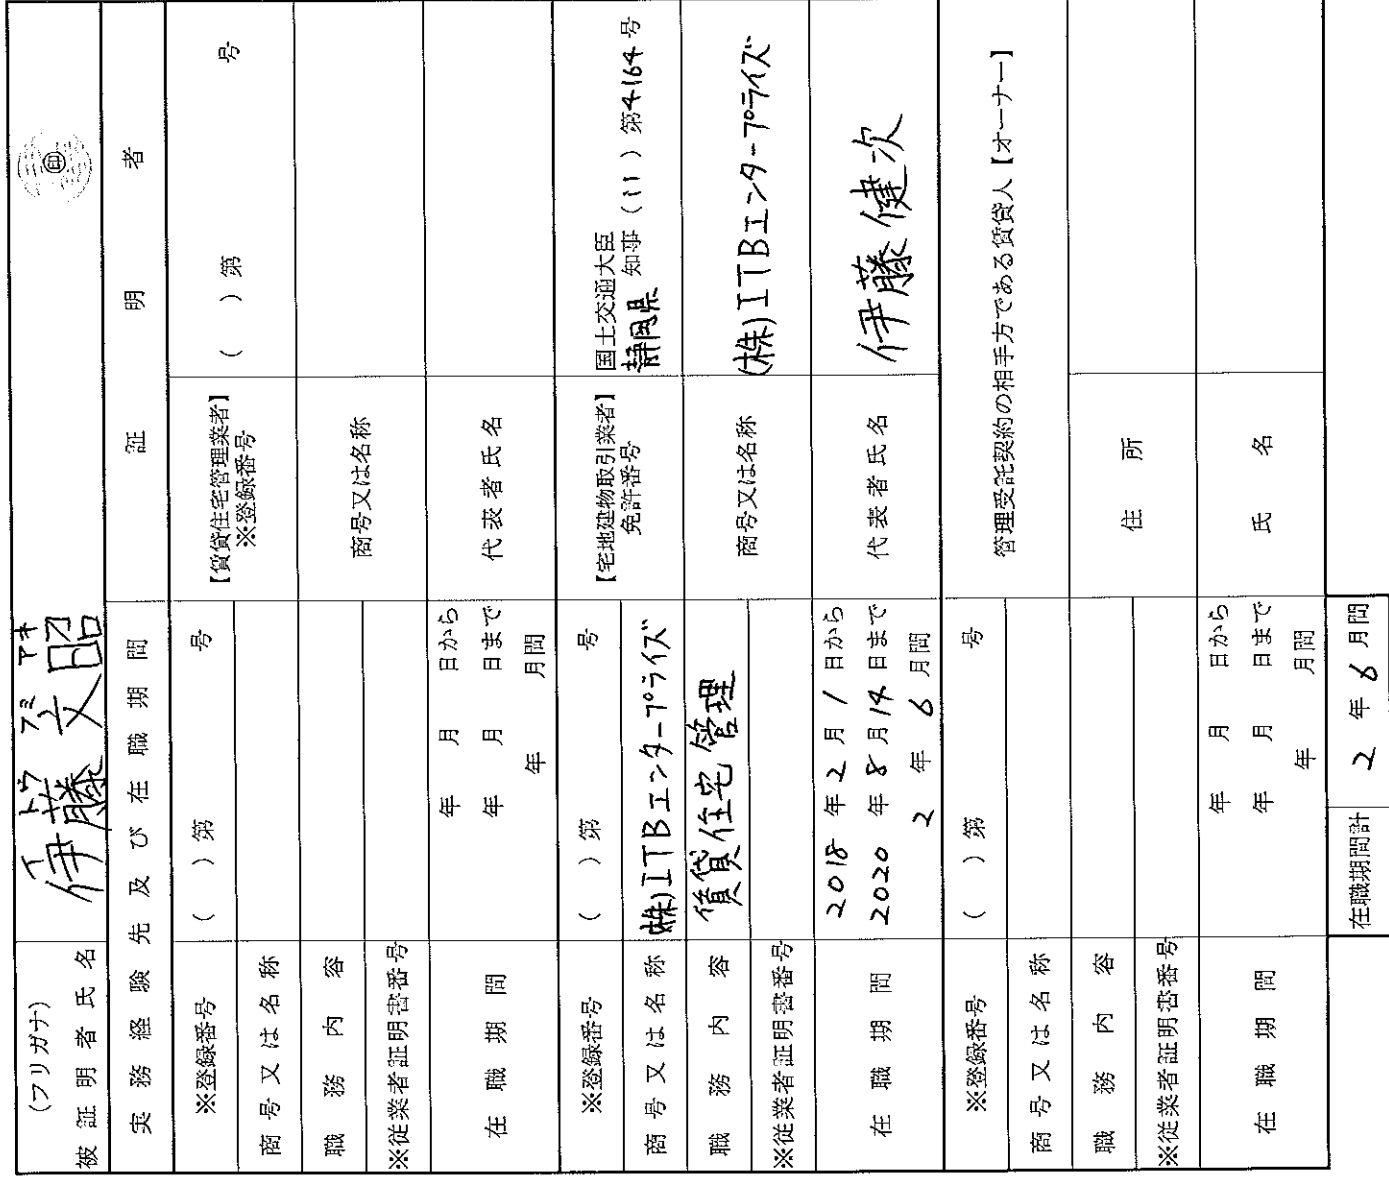 (フリガナ)
被証明者氏名
イ トウ フミ アキ
伊藤 文昭
印
実務経験先及び在職期間
証明者
※登録番号
( )第 号
【賃貸住宅管理業者】
※登録番号
( )第 号
商号又は名称
商号又は名称
職務内容
※従業者証明書番号
代表者氏名
在職期間
年 月 日から
年 月 日まで
年 月間
※登録番号
( )第 号
【宅地建物取引業者】
免許番号
国土交通大臣
静岡県 知事 (11) 第4164号
商号又は名称
(株)ITBエンタープライズ
商号又は名称
(株)ITBエンタープライズ
職務内容
賃貸住宅管理
※従業者証明書番号
代表者氏名
伊藤健次
在職期間
2018年2月1日から
2020年8月14日まで
2年6月間
※登録番号
( )第 号
管理受託契約の相手方である賃貸人【オーナー】
商号又は名称
職務内容
住所
※従業者証明書番号
氏名
在職期間
年 月 日から
年 月 日まで
年 月間
在職期間計
2年6月間